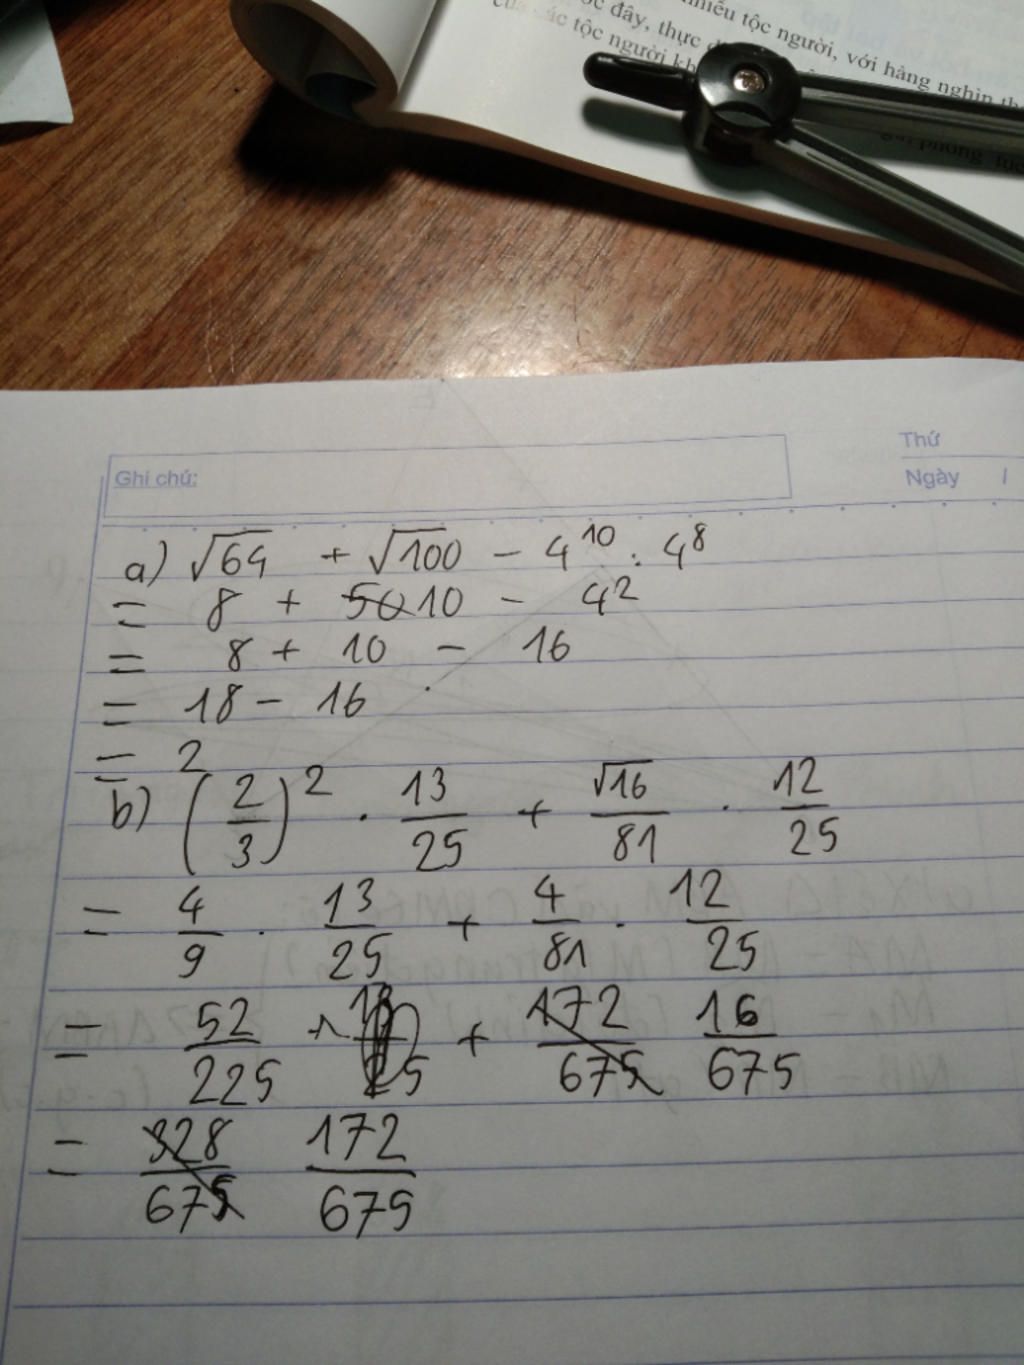 nhiều tộc người, với hàng nghìn
đây, thực
tộc người
Thứ
Ghi chú:
Ngày /
a) √64 + √100 - 4¹⁰ : 4⁸
= 8 + 50 10 - 4²
= 8 + 10 - 16
= 18 - 16
= 2
b) (2/3)² · 13/25 + √16/81 · 12/25
= 4/9 · 13/25 + 4/81 · 12/25
= 52/225 + 172/675 16/675
= 328/675 172/675